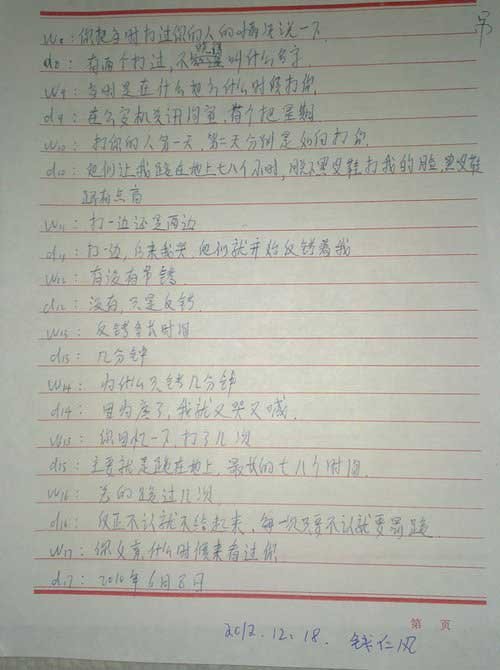 吊
W8: 你把当时打过你的人的情况说一下
d8: 有两个打过,不晓得叫什么名字
W9: 当时是在什么地方什么时候打你
d9: 在公安机关讯问室,有个把星期
W10: 打你的人第一天,第二天分别是如何打你
d10: 他们让我跪在地上七八个小时,用黑皮鞋打我的脸,黑皮鞋
还有点高
W11: 打一边还是两边
d11: 打一边,后来我哭,他们就开始反铐着我
W12: 有没有吊铐
d12: 没有,只是反铐.
W13: 反铐多长时间
d13: 几分钟
W14: 为什么只铐几分钟
d14: 因为疼了,我就又哭又喊.
W15: 你回忆一下,打了几次
d15: 主要就是跪在地上,最长的七八个时间.
W16: 总的跪过几次
d16: 反正不认就不给起来,每一次只要不认就要罚跪
W17: 你父亲什么时候来看过你
d17: 2010年6月8日
第 页
2012.12.18. 钱仁风